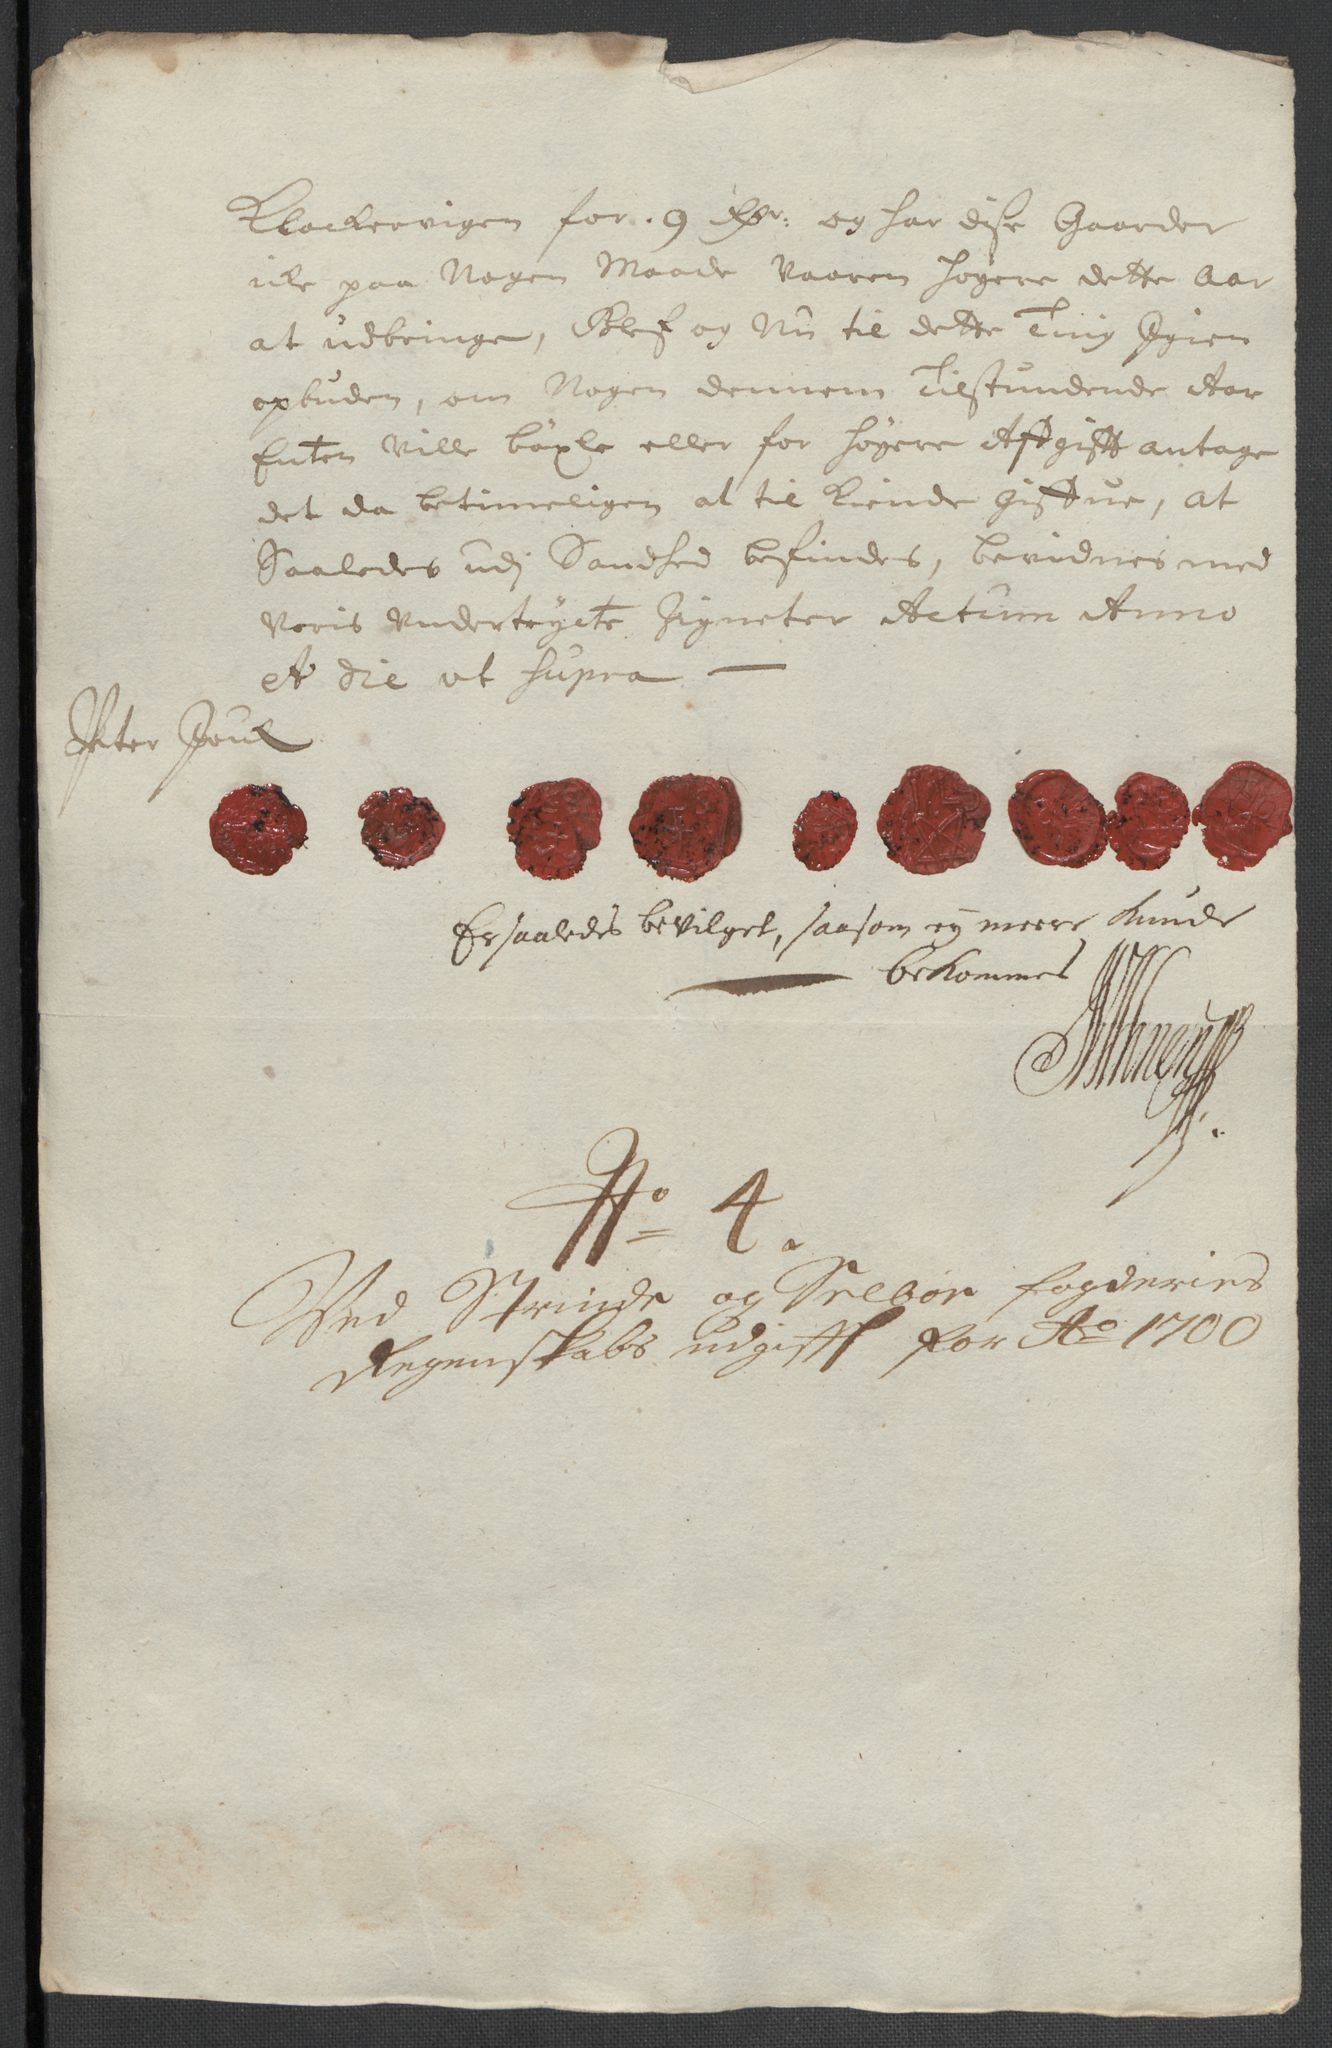 Klockervigen for. 9 Rdr: og har dise Gaarder
icke paa Nogen Maade Vaaren høgere dette Aar
at udbringe, Blef og Nu til dette Ting Igien
opbuden, om Nogen dennem Tilstundende Aar
Enten Ville böxle eller for høyere Afgift antage
det da betimeligen at til Kiende gifue, at
Saaledes udj Sandhed befindes, bevidnes med
Voris Vndertrycte Zigneter Actum Anno
et die ut supra
Peter Joul
Er saaledes bevilget, saasom ey meere Kunde
bekommes
No 4.
Ved Strinde og Selboe fogderies
Regenskabs udgift for Ao 1700